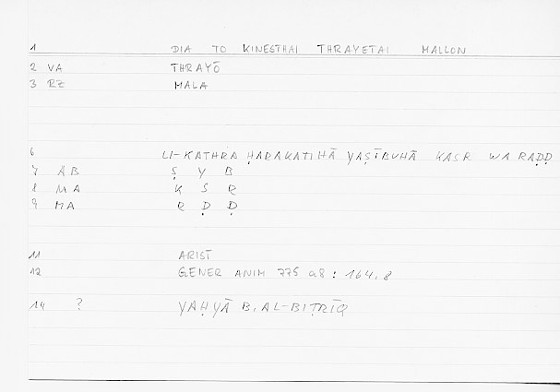 1 DIA TO KINEGTHAI THRAYETAI MALLON
2 VA THRAYŌ
3 RZ MALA
6 LI-KATHRA ḤARAKATIHĀ YAṢĪBUHĀ KASR WA RAḌḌ
7 AB Ṣ Y B
8 MA K S R
9 MA R Ḍ Ḍ
11 ARIST
12 GENER ANIM 775 a8 : 164.8
14 ? YAḤYĀ B. AL-BIṬRĪQ